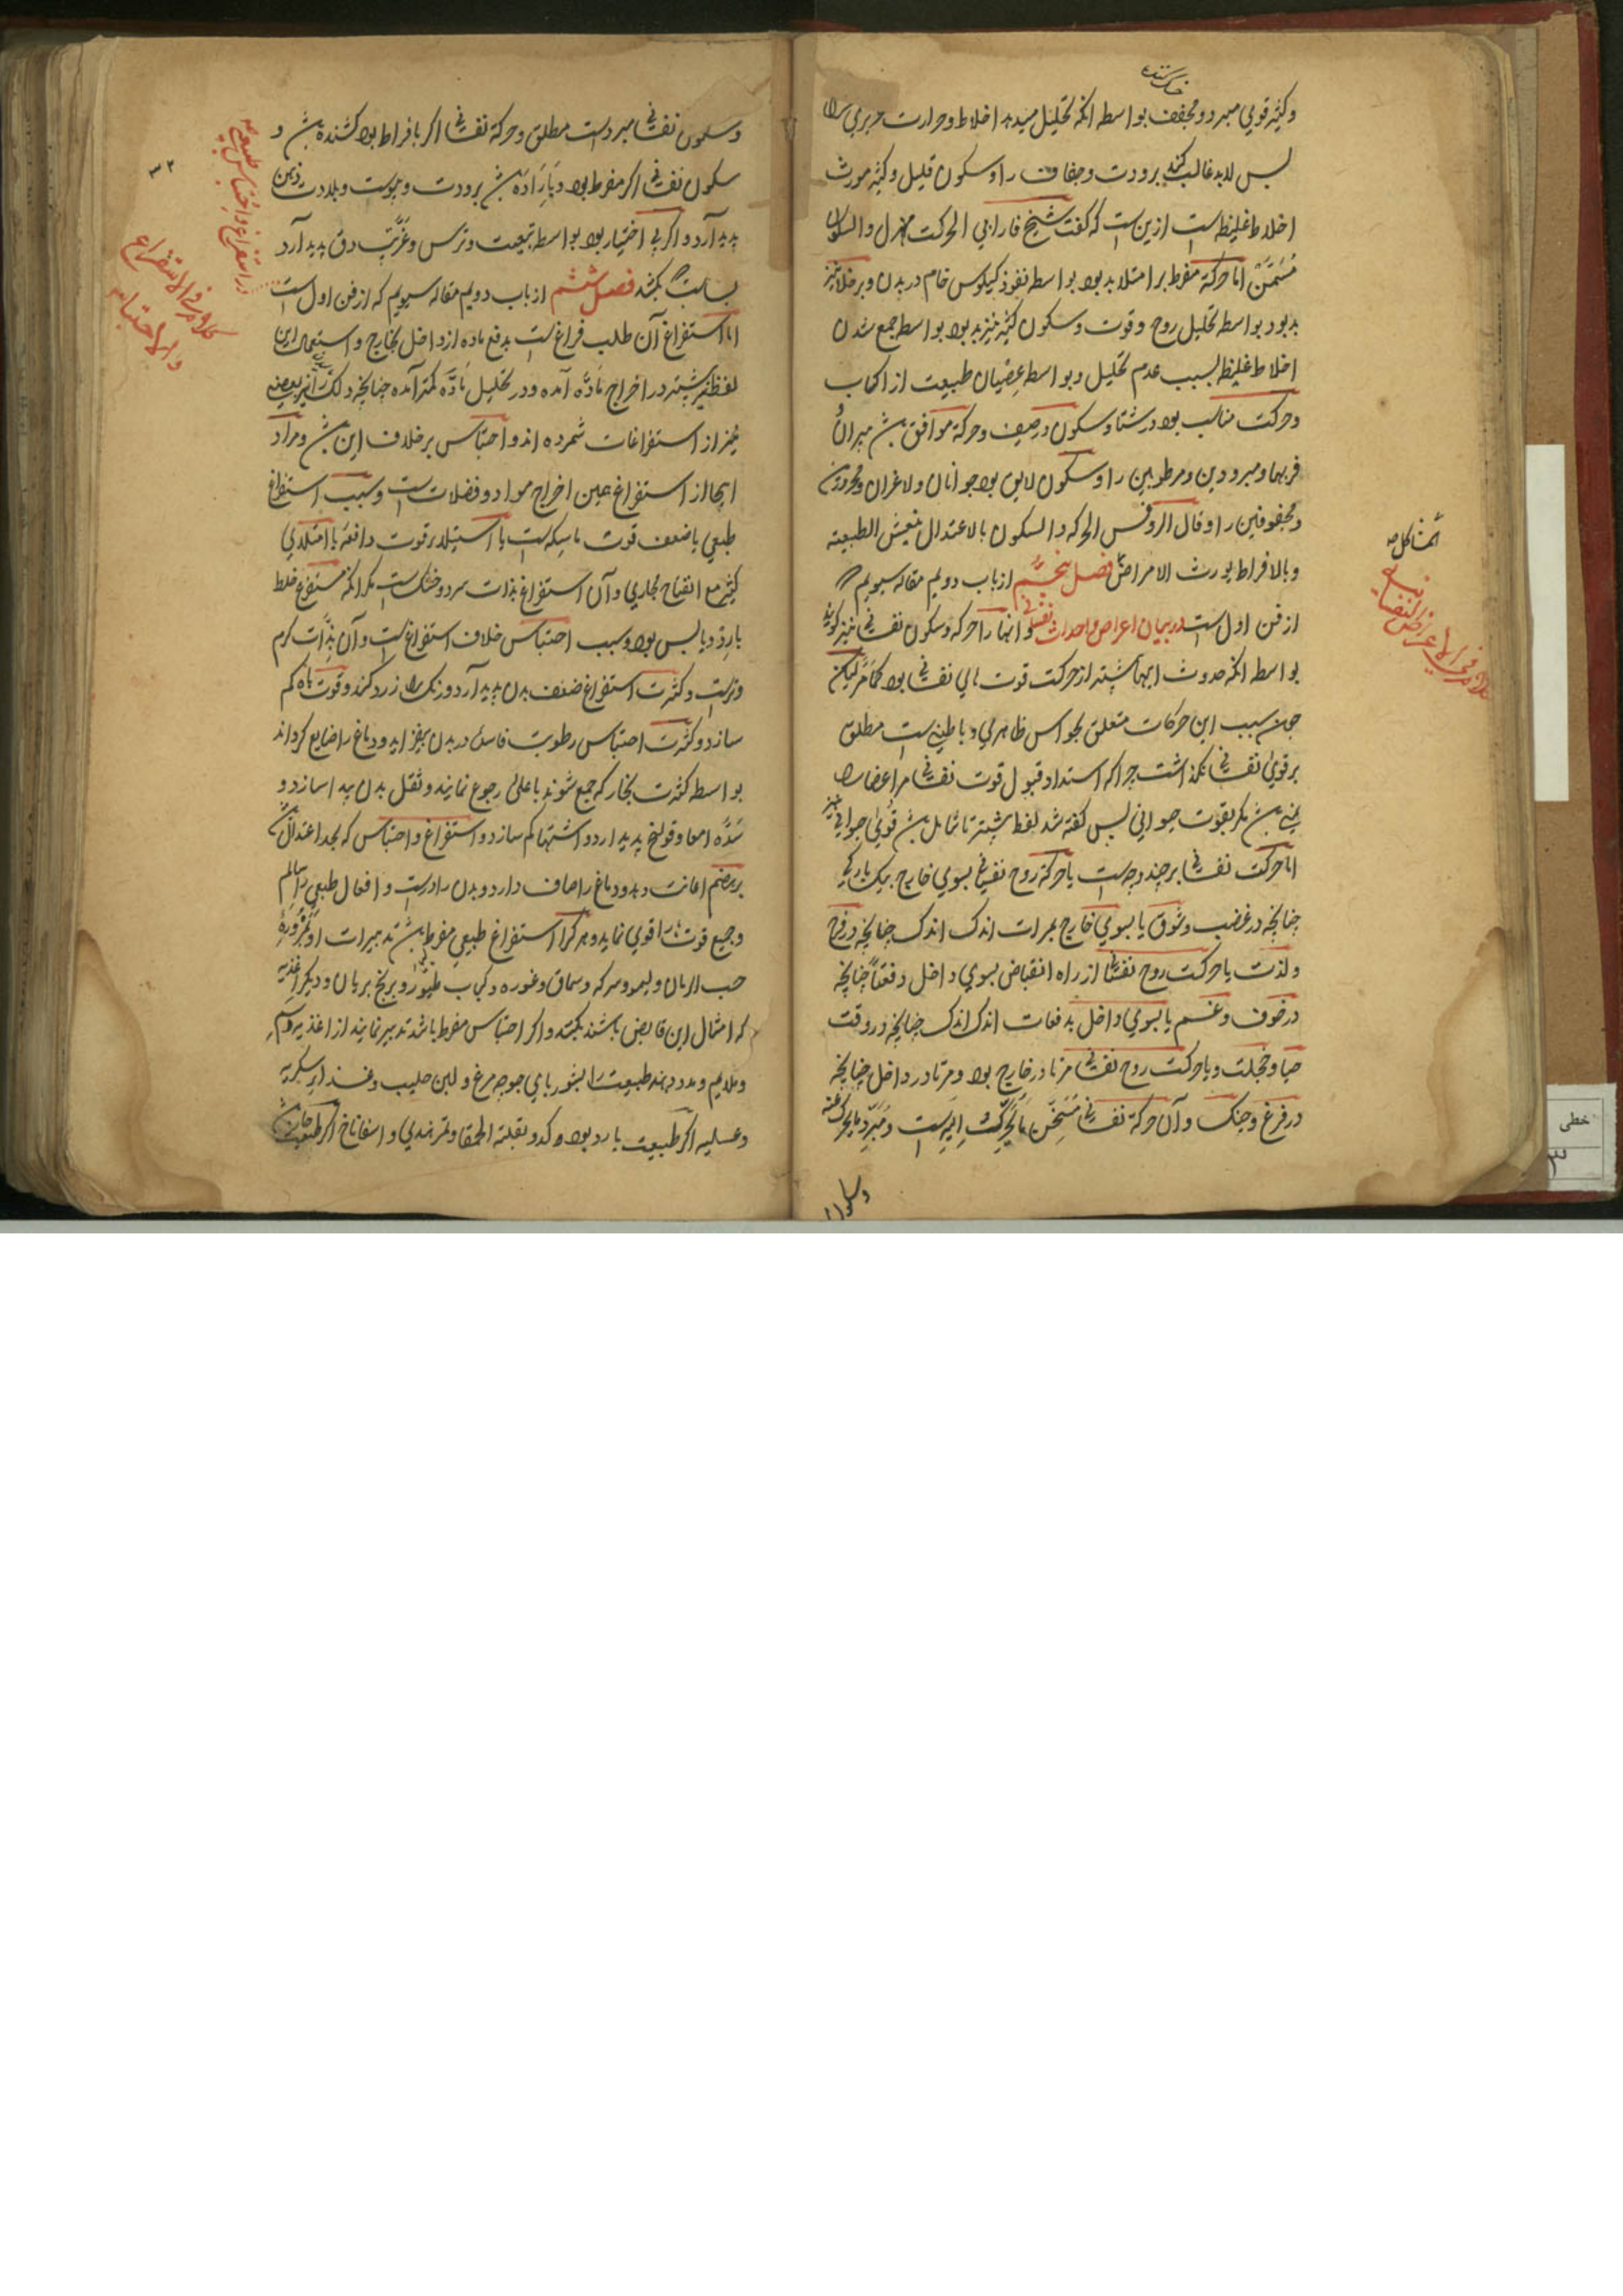 وکثیر قوی مبرد و مجفف بواسطه انکه تحلیل میدهد اخلاط و حرارت غریزی را
پس لابد غالب کند برودت و جفاف را و سکون قلیل و کثیر مورث
اخلاط غلیظه است ازین است که گفت شیخ فارابی الحرکت مهزل والسکون
مُسَمِّن اما حرکة مفرط بر امتلا بد بود بواسطه نفوذ کیلوس خام در بدن و بر خلا نیز
بد بود بواسطه تحلیل روح و قوت و سکون کثیر نیز بد بود بواسطه جمع شدن
اخلاط غلیظ بسبب عدم تحلیل و بواسطه عصیان طبیعت از
وحرکت مناسب بود در شتا و سکون در صیف و حرکة موافق باشد پیران
فربها و مبرودین و مرطوبین را و سکون لایق بود جوانان و لاغران و محرورین
و مجففوفین را وقال الروفس الحرکه والسکون بالاعتدال ینعش الطبیعته
وبالافراط یورث الامراض فصل پنجم از باب دویم مقاله سیویم
از فن اول است در بیان اعراض و احداث نفسانی و انها را حرکه و سکون نفسانی نیز گویند
بواسطه انکه حدوث اینها بیشتر از حرکت قوت های نفسانی بود کمامَرَّ لیکن
چون سبب این حرکات متعلق بحواس ظاهری و باطنی است مطلق
بر قوی نفسانی نگذاشت چراکه استداد قبول قوت نفسانی مر اعضا را
نمی باشد مگر بقوت حیوانی پس گفته شد لفظ بیشتر تا شامل باشد قوی حیوانی نیز
اما حرکت نفسانی بر چند وجه است یا حرکة روح نفسانی بسوی خارج بیک بارگی
چنانچه در غضب و شوق یا بسوی خارج بمرات اندک اندک چنانچه در فرح
ولذت یا حرکت روح نفسانی از راه انقباض بسوی داخل دفعتاً چنانچه
در خوف و غم یا بسوی داخل بدفعات اندک اندک چنانچه در وقت
حیا و خجلت و یا حرکت روح نفسانی مرتا در خارج بود و مرتا در داخل چنانچه
در فزع و جنک و آن حرکة نفسانی مُسَخِّن مایَحَرِّکُ اِلَیه است و مُبَرِّد مایحرک عنه
وسکون
وسکون نفسانی مبرد است مطلق و حرکة نفسانی اگر بافراط بود کشنده باشد و
سکون نفسانی اگر مفرط بود و بارَادَه باشد برودت و یبوست و بلادت ذهن
پدید آرد و اگر بی اختیار بود بواسطه تبعیت و ترس و غم تب دق پدید آرد
بکشد فصل ششم از باب دویم مقاله سیویم که از فن اول است
اما استفراغ آن طلب فراغ است بدفع ماده از داخل بخارج و استعمال این
لفظ بیشتر در اخراج مادّه آمده و در تحلیل مادّه کمتر آمده چنانچه دلک را نیز بعضی
نیز از استفراغات شمرده اند و احتباس بر خلاف این باشد و مراد
اینجا از استفراغ عین اخراج مواد و فضلات است و سبب استفراغ
طبعی یا ضعف قوت ماسکه است یا استیلا بر قوت دافعه یا امتلای
کثیر مع انفتاح مجاری و آن استفراغ بذات سرد و خشک است مگر انکه مستفرغ خلط
بارد و یابس بود و سبب احتباس خلاف استفراغ است و آن بذات گرم
و تر است و کثرت استفراغ ضعف بدن پدید آرد و رنک را زرد کند و قوت باه کم
سازد و کثرت احتباس رطوبت فاسده در بدن بیفزاید و دماغ را ضایع گرداند
بواسطه کثرت بخار که جمع شوند باعلیٰ رجوع نمایند و ثقل بدن پیدا سازد و
سُدَّه امعا و قولنج پدید ارد و اشتها کم سازد و استفراغ و احتباس که بحد اعتدال باشد
بر هضم اعانت دهد و دماغ را صاف دارد و بدن را درست و افعال طبعی را سالم
و جمیع قوت ها را قوی نماید و هر کرا استفراغ طبعی مفرط باشد تدبیرات او بمُزوَّره
حب الرمان و لیمو و سرکه و سماق و غوره و کباب طیور و برنج بریان و دیگر اغذیه
که امثال این قابض باشند بکنند و اگر احتباس مفرط باشد تدبیر نمایند از اغذیه دسم
و ملایم و مدد دهند طبیعت را بشوربای جوجه مرغ و لبن حلیب و غذا سکریه
و عسلیه اگر طبیعت بارد بود و کدو بقلته الحمقا و تمر هندی و اسفاناخ اگر طبیعت حار باشد
در استفراغ و احتباس طبیعی
کلام فی الاستفراغ
والاحتباس
کلام فی الاعراض النفسانیه
خطی
۳